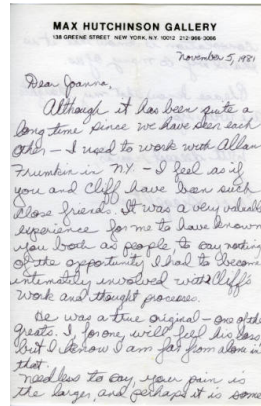 MAX HUTCHINSON GALLERY
138 GREENE STREET NEW YORK, N.Y. 10012 212-966-3066
November 5, 1981
Dear Joanna,
Although it has been quite a
long time since we have seen each
other – I used to work with Allan
Frumkin in N.Y. – I feel as if
you and Cliff have been such
close friends. It was a very valuable
experience for me to have known
you both as people to say nothing
of the opportunity I had to become
intimately involved with Cliff's
work and thought processes.
He was a true original – one of the
greats. I, for one, will feel his loss
but I know I am far from alone in
that.
Needless to say, your pain is
the larger, and perhaps it is some